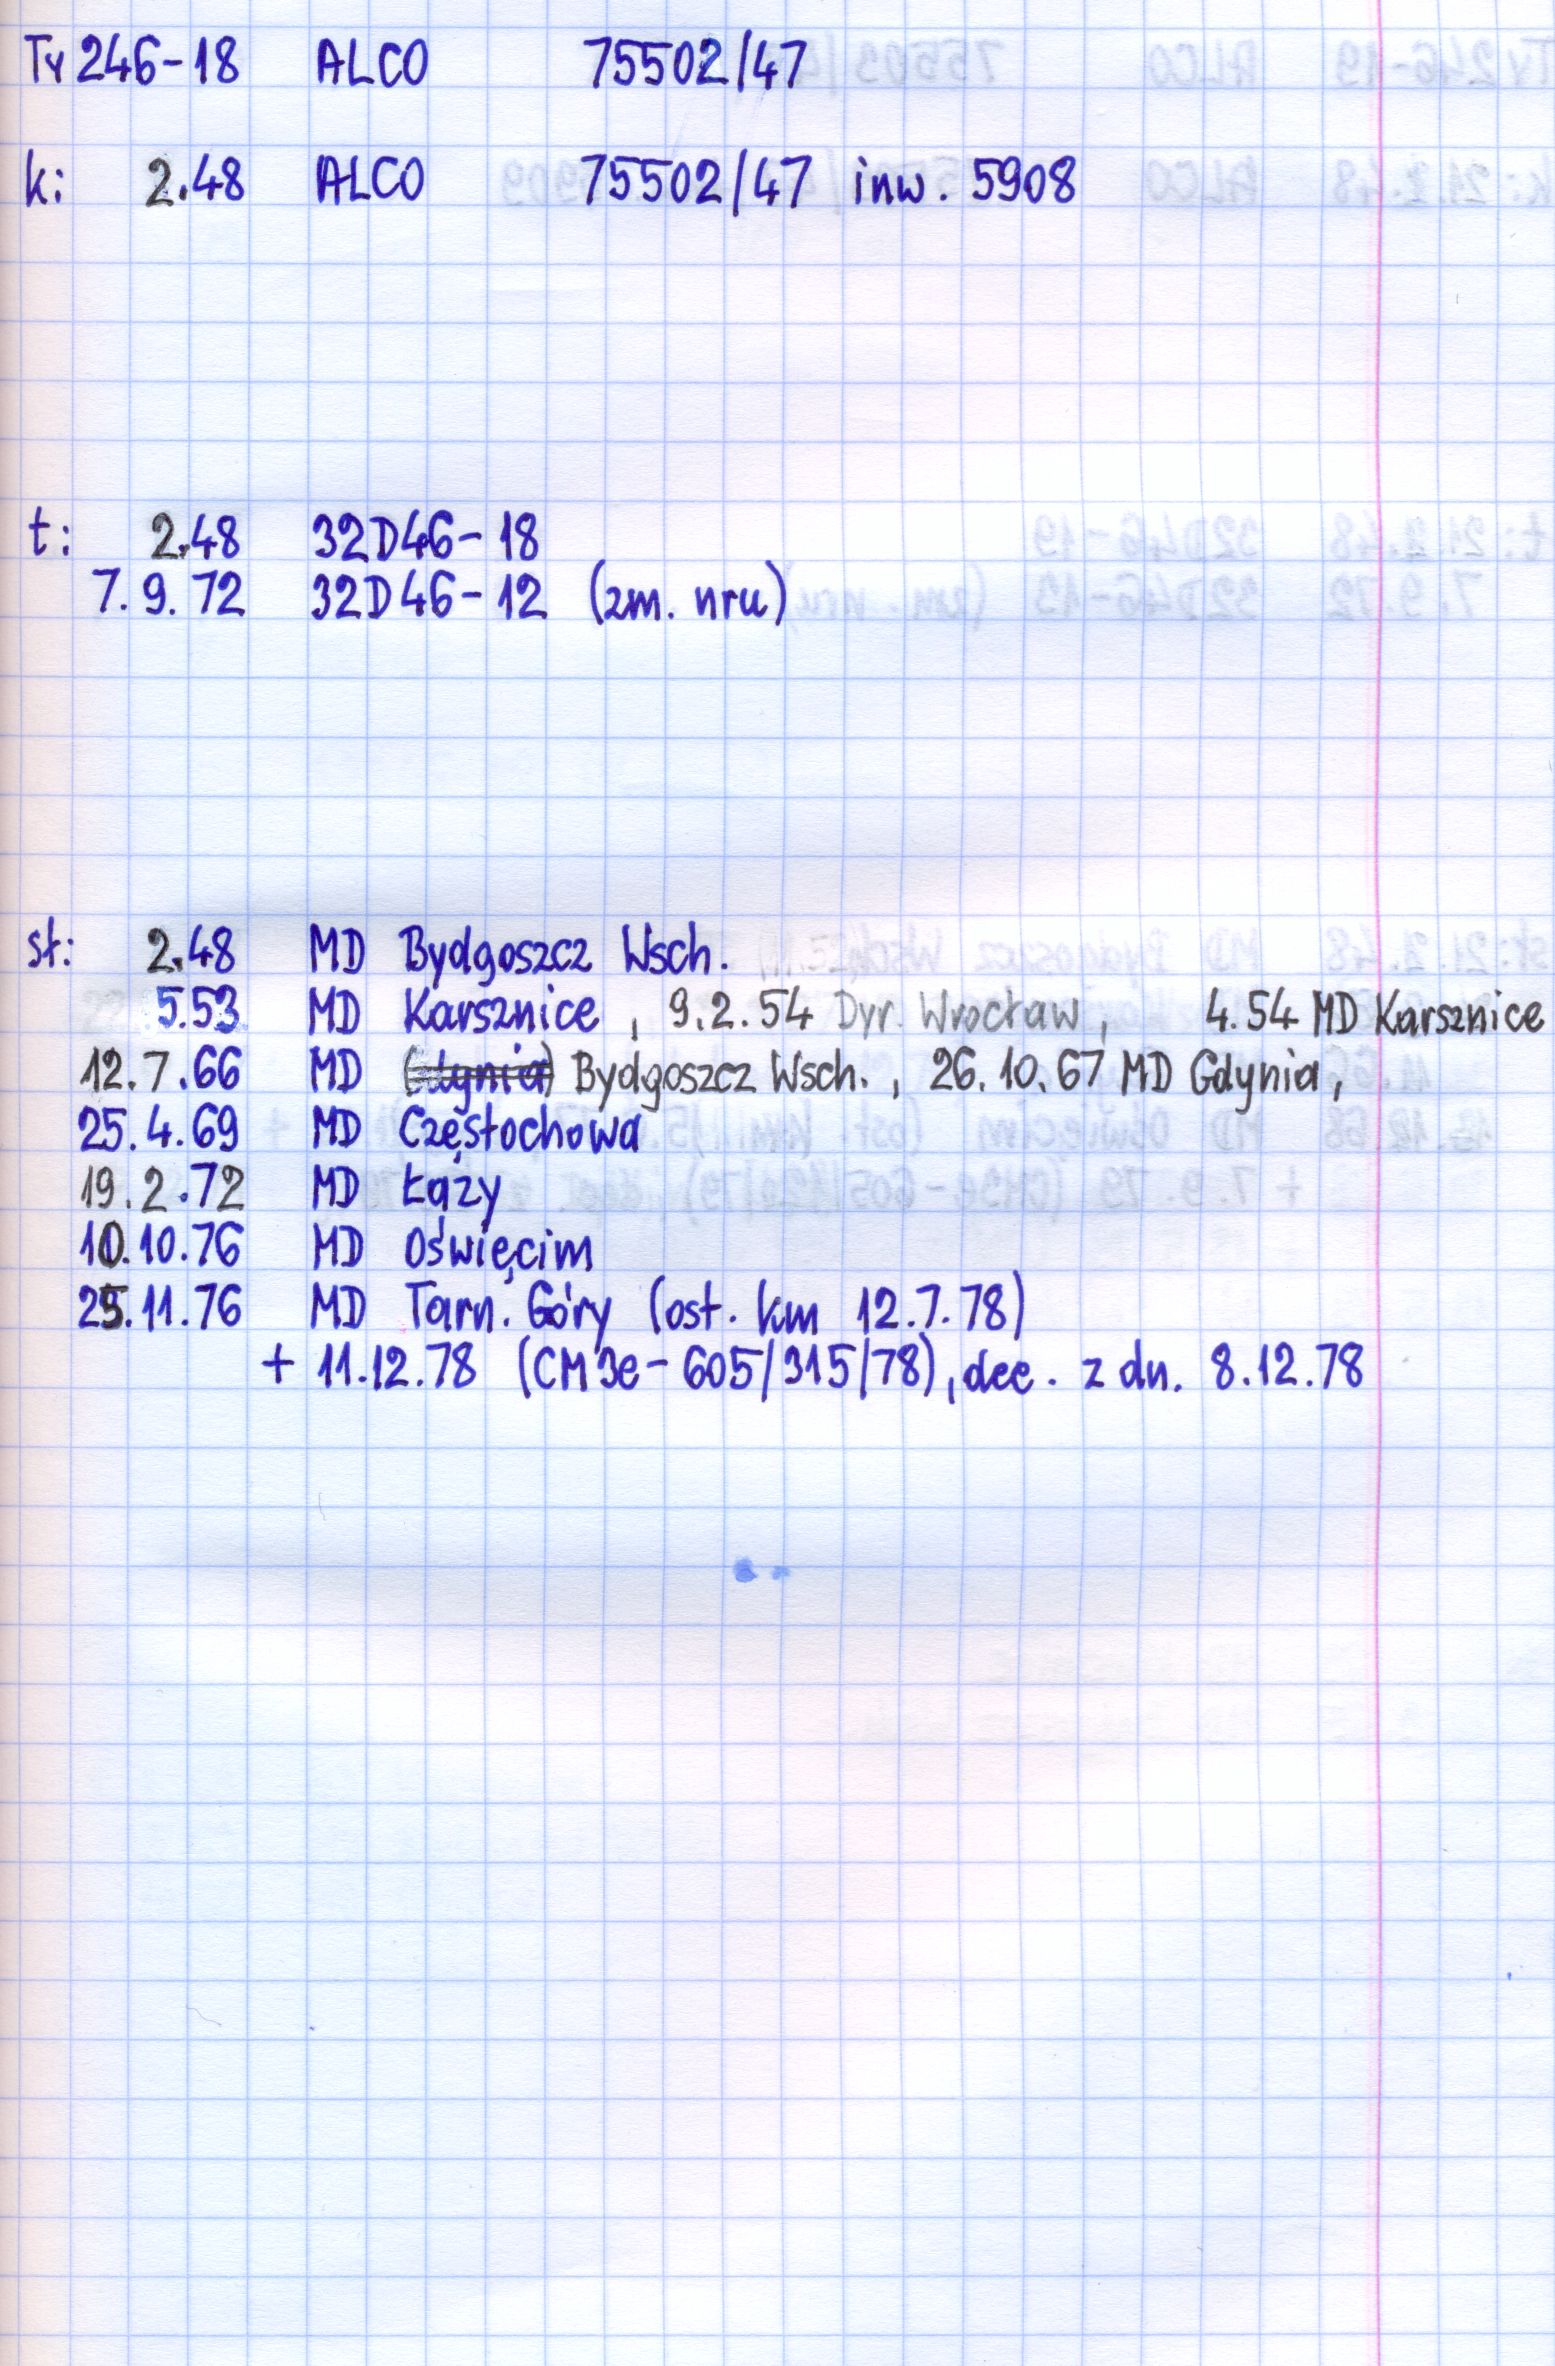 Ty 246-18 ALCO 75502/47
k: 2.48 ALCO 75502/47 inw. 5908
t: 2.48 32D46-18
7.9.72 32D46-12 (zm. nru)
st: 2.48 MD Bydgoszcz Wsch.
5.53 MD Karsznice, 9.2.54 Dyr. Wrocław, 4.54 MD Karsznice
12.7.66 MD (Gdynia) Bydgoszcz Wsch., 26.10.67 MD Gdynia,
25.4.69 MD Częstochowa
19.2.72 MD Łazy
10.10.76 MD Oświęcim
25.11.76 MD Tarn. Góry (ost. km 12.7.78)
+ 11.12.78 (CM3e-605/315/78), dec. z dn. 8.12.78